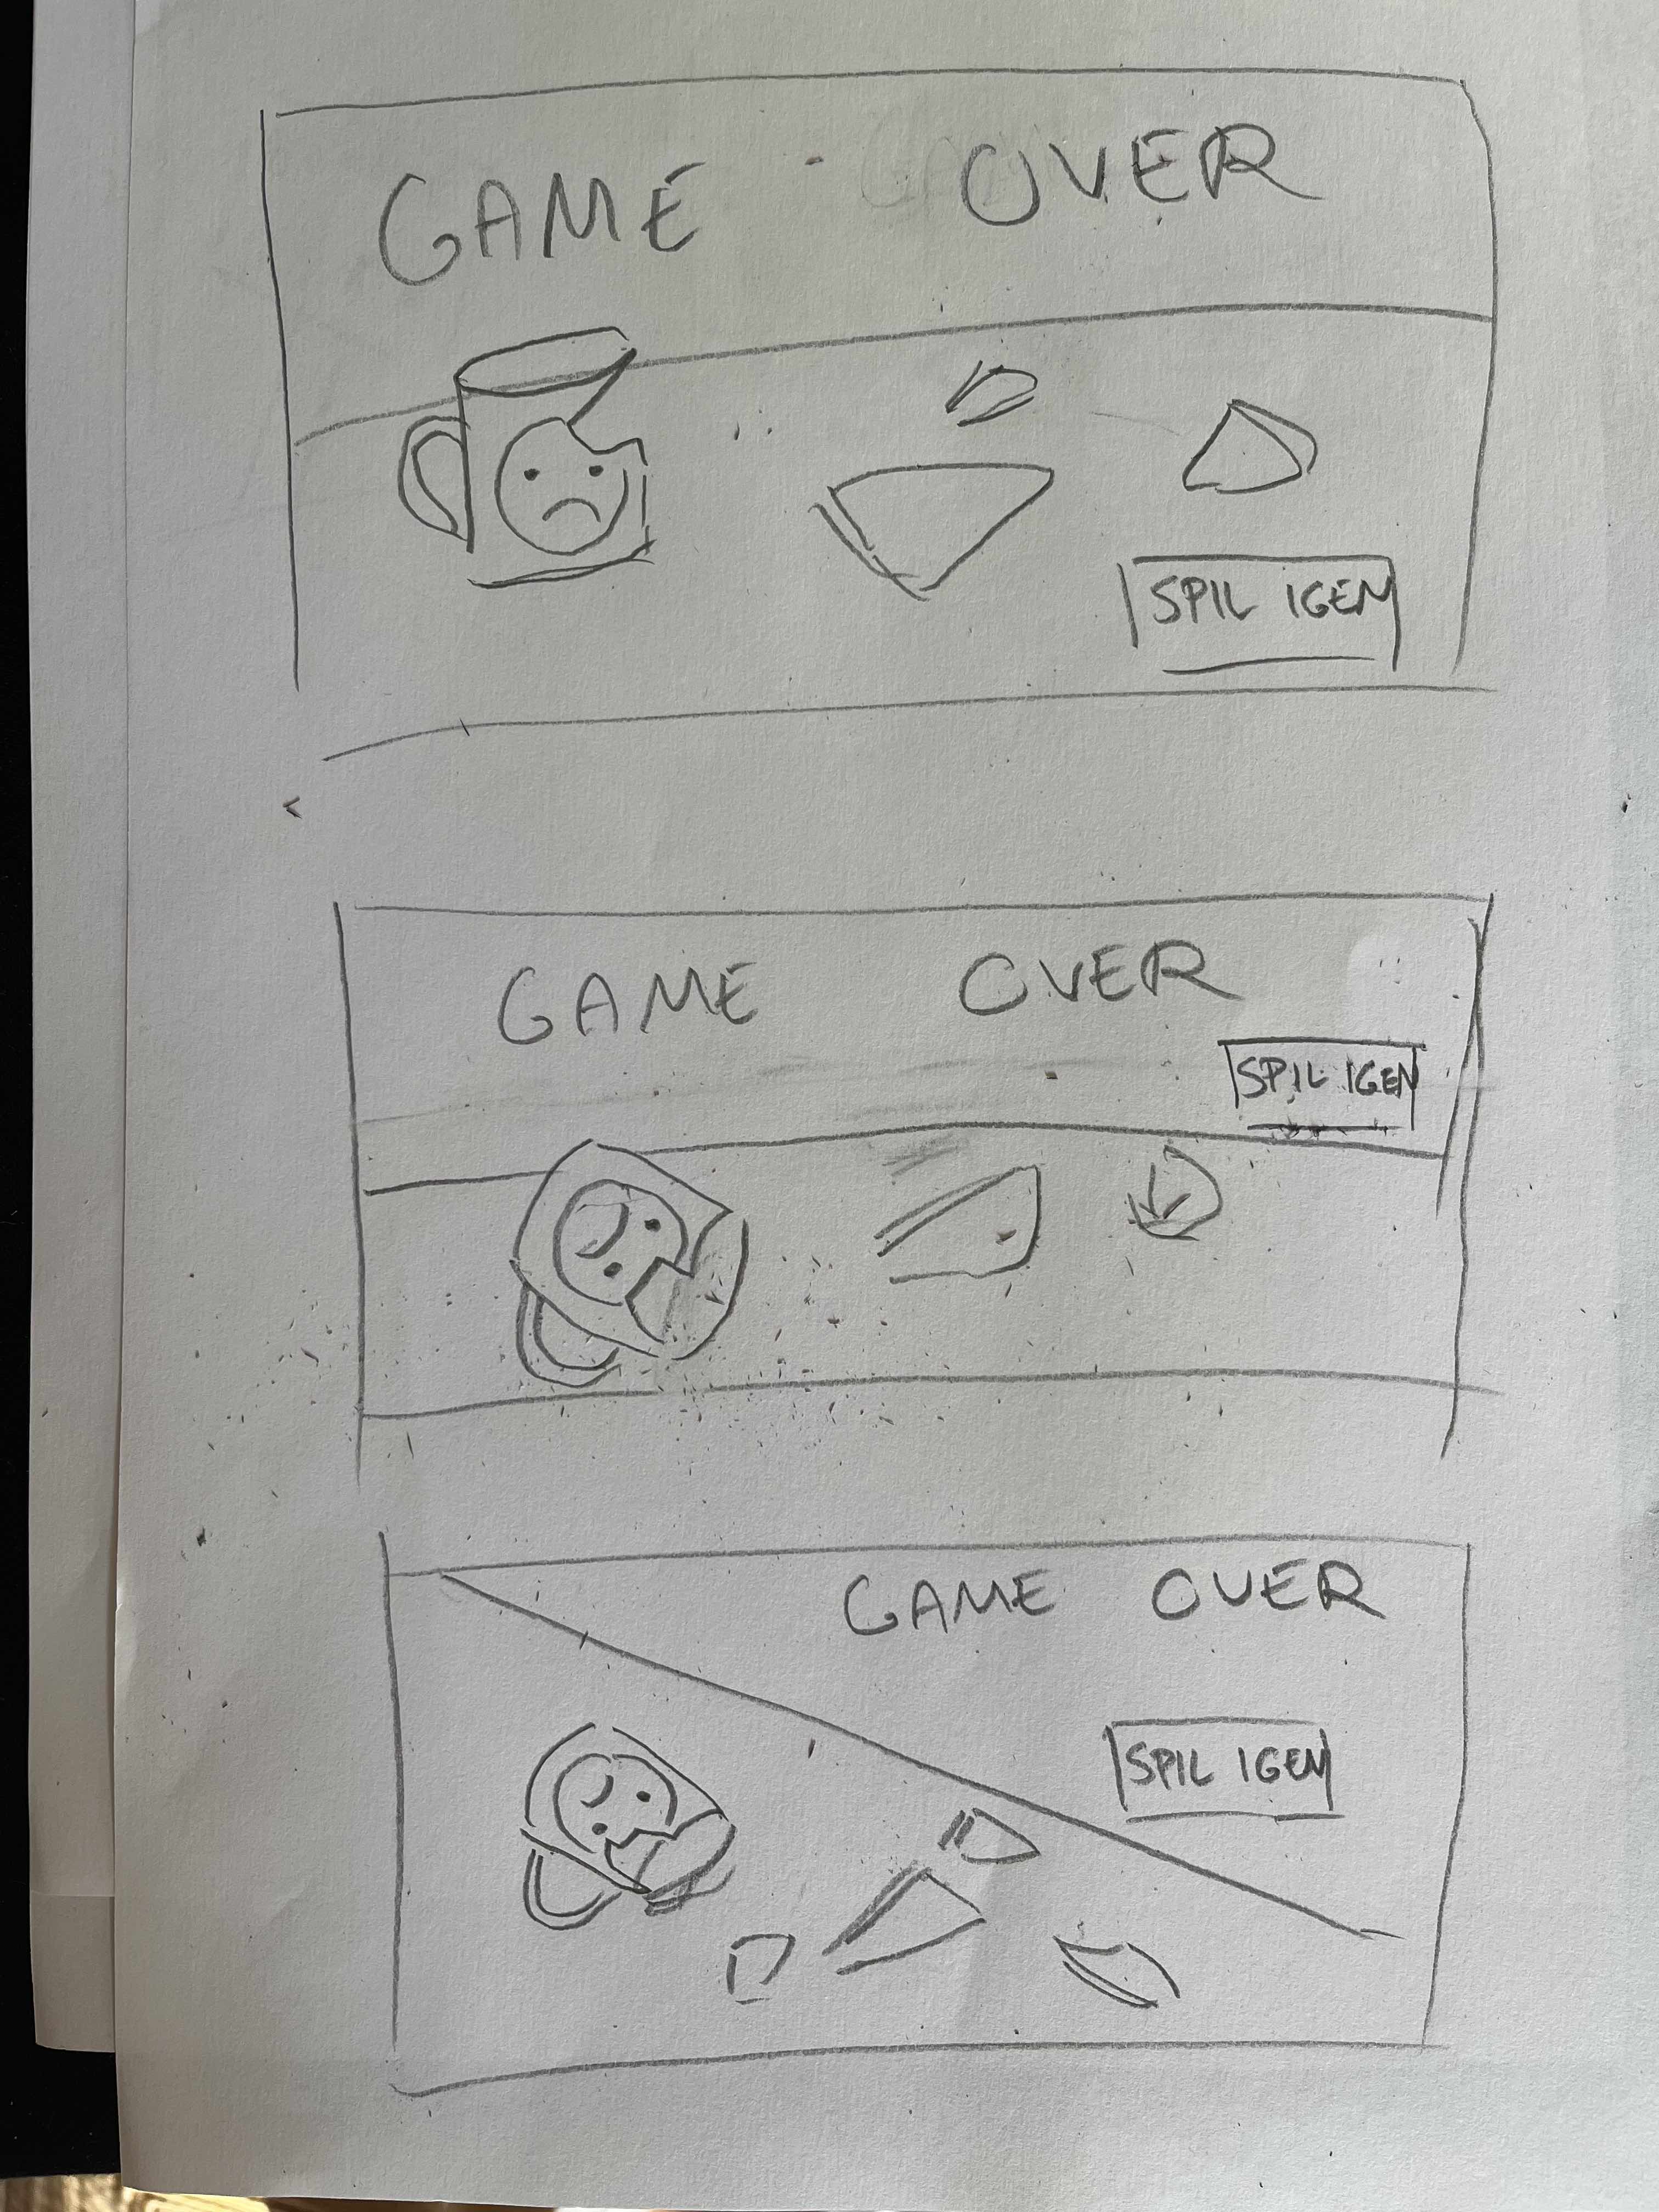 GAME OVER
SPIL IGEN
GAME OVER
SPIL IGEN
GAME OVER
SPIL IGEN